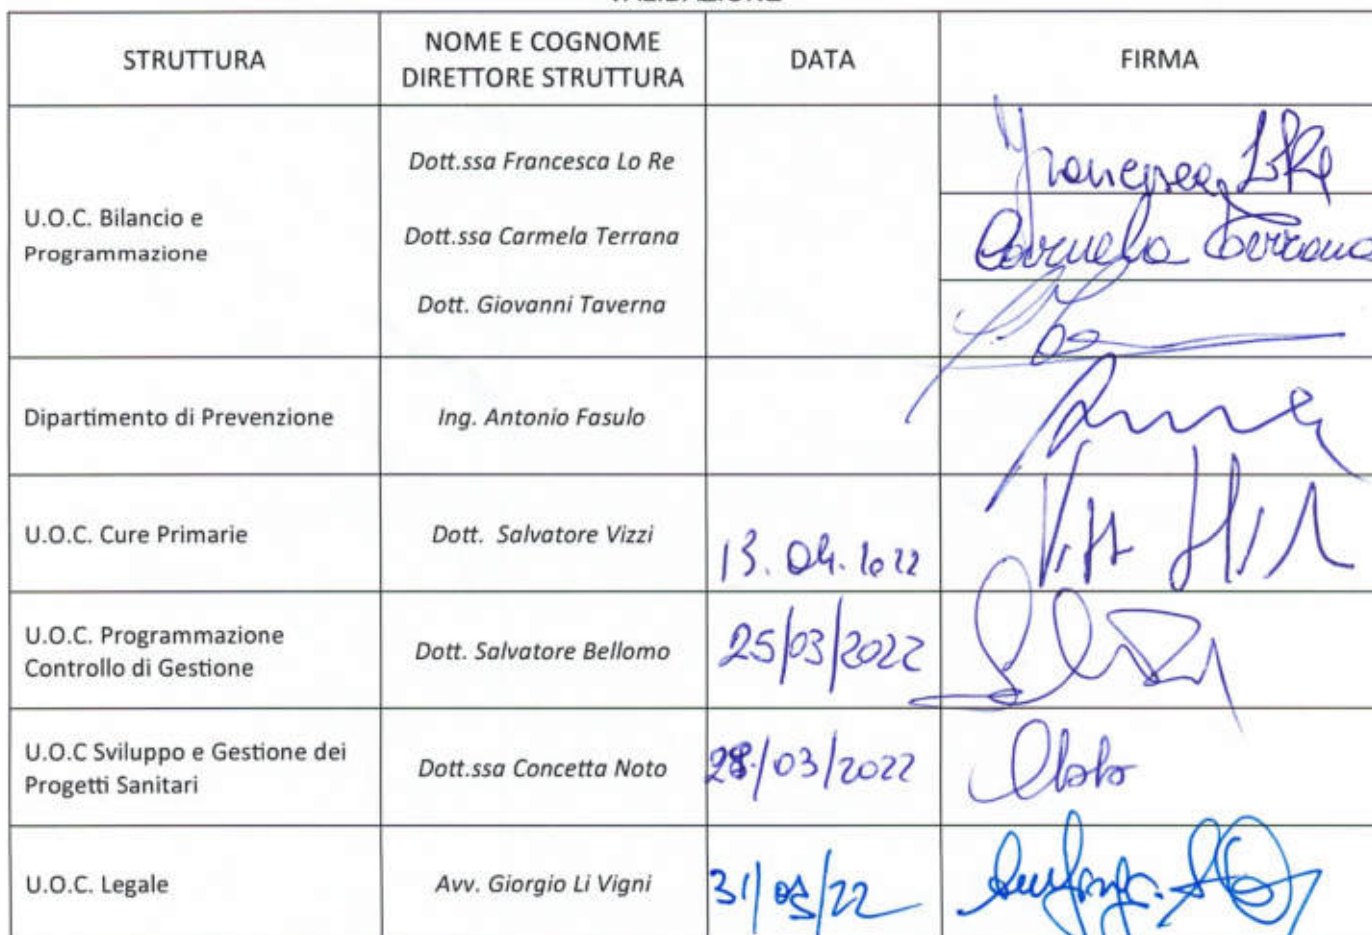 VALIDAZIONE
STRUTTURA
NOME E COGNOME
DIRETTORE STRUTTURA
DATA
FIRMA
U.O.C. Bilancio e
Programmazione
Dott.ssa Francesca Lo Re
Francesca Lo Re
Dott.ssa Carmela Terrana
Carmela Terrana
Dott. Giovanni Taverna
Dipartimento di Prevenzione
Ing. Antonio Fasulo
U.O.C. Cure Primarie
Dott. Salvatore Vizzi
13.04.2022
U.O.C. Programmazione
Controllo di Gestione
Dott. Salvatore Bellomo
25/03/2022
U.O.C Sviluppo e Gestione dei
Progetti Sanitari
Dott.ssa Concetta Noto
28/03/2022
Noto
U.O.C. Legale
Avv. Giorgio Li Vigni
31/03/22